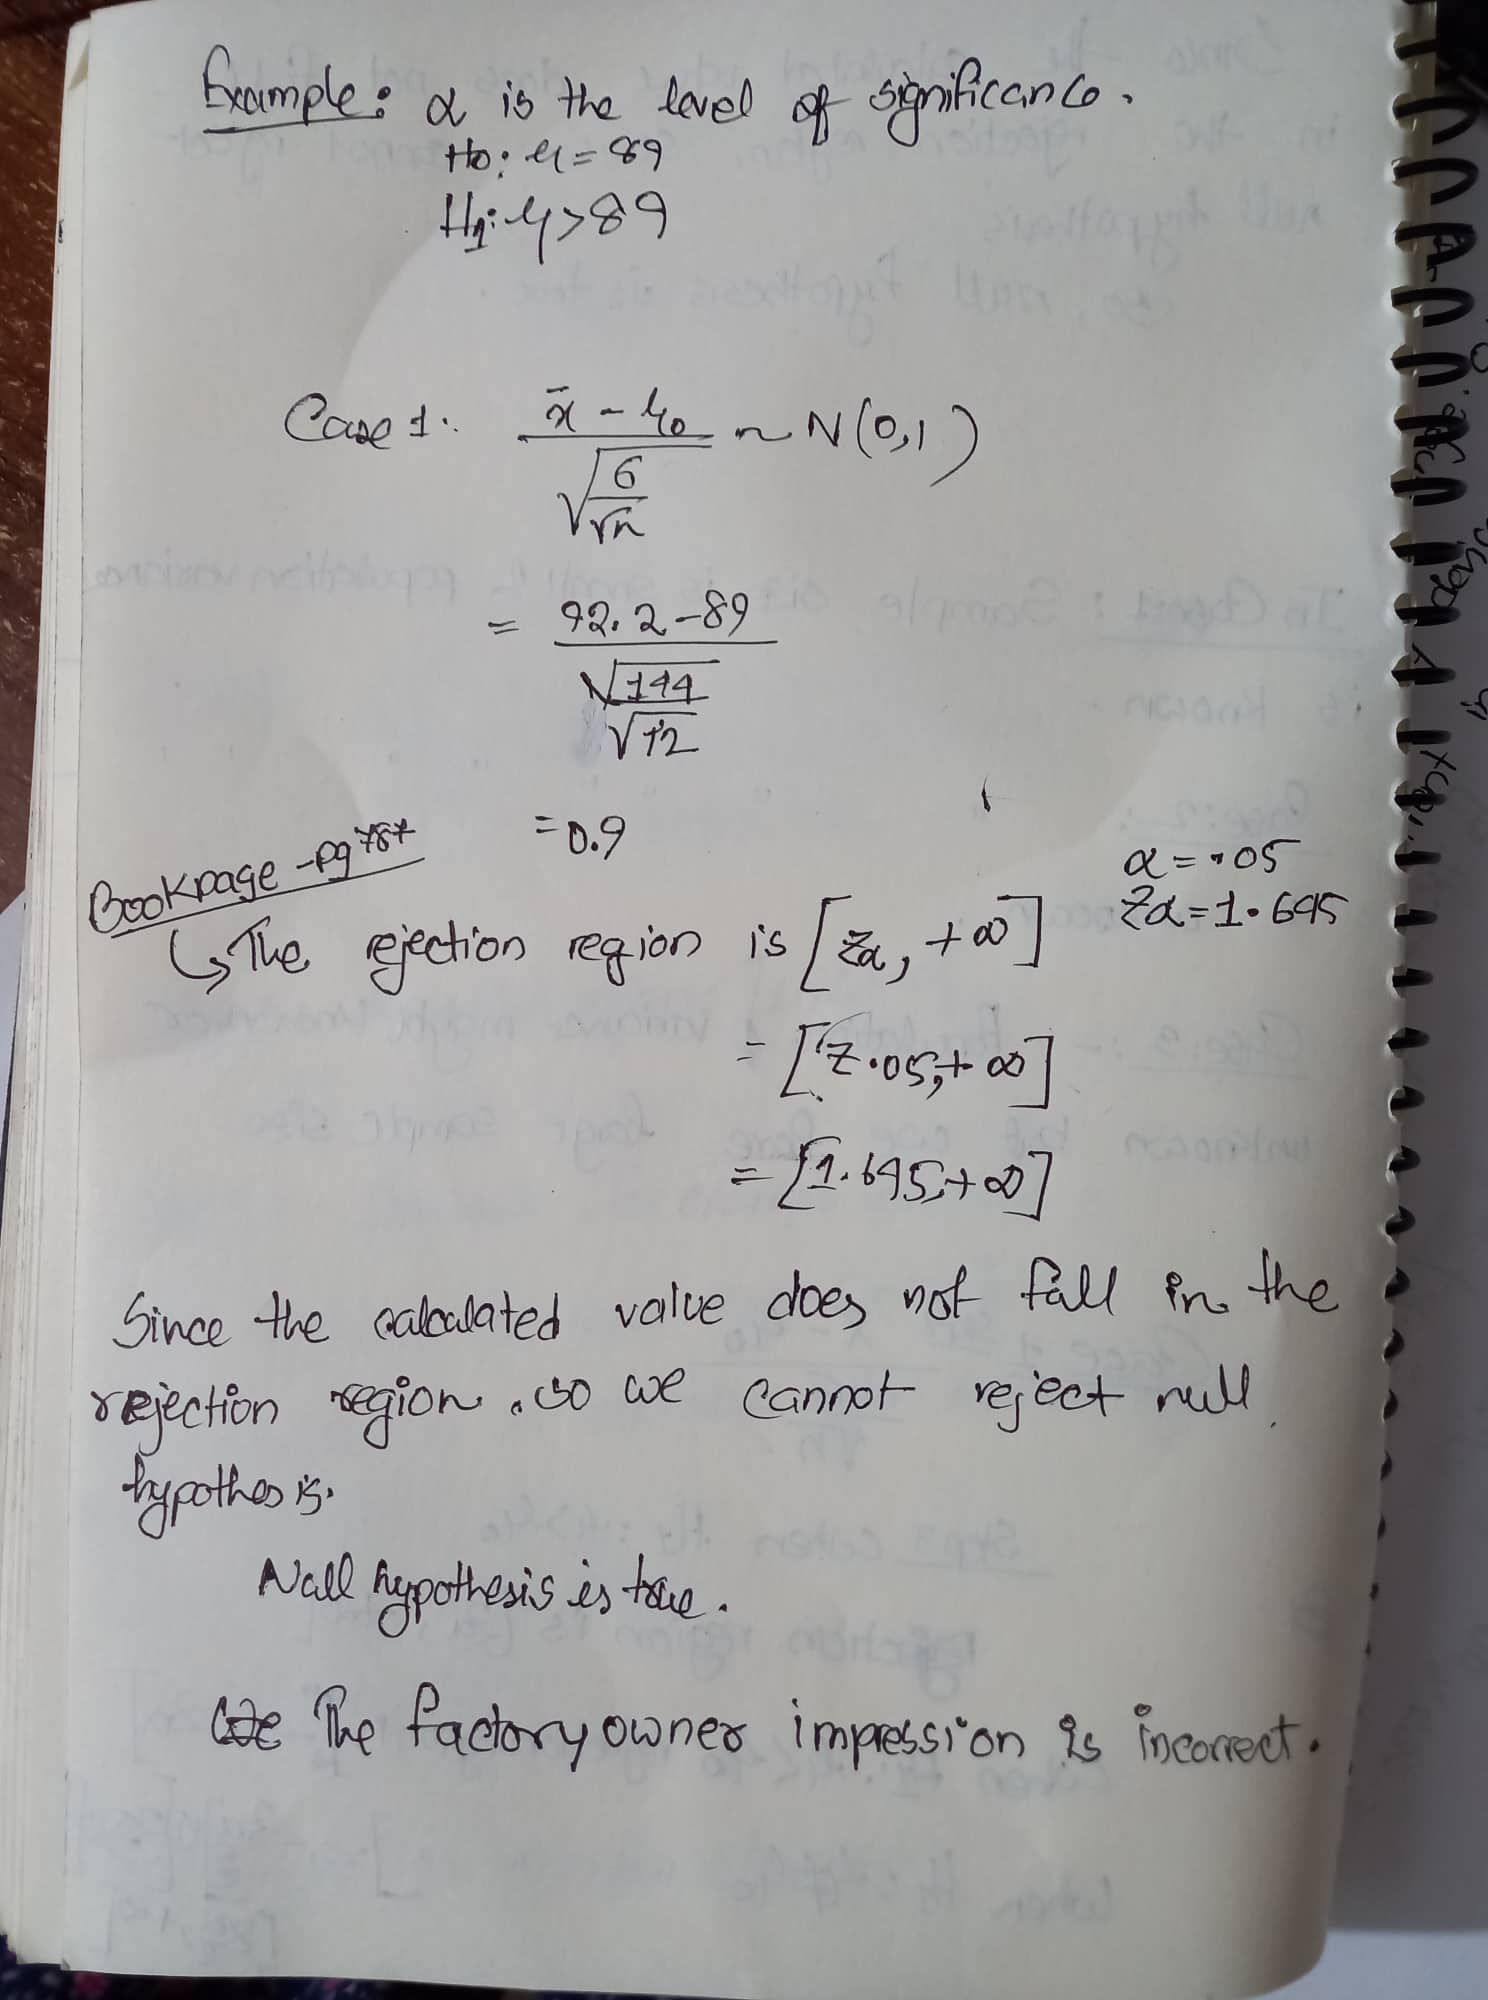 Example: α is the level of significance.
H0: μ = 89
H1: μ > 89
Case 1: x̄ - μ0 / √(σ/√n) ~ N(0,1)
= 92.2 - 89 / (√144/√12)
= 0.9
Bookpage - pg 787
α = .05
Zα = 1.645
↳ The rejection region is [Zα, +∞]
= [Z.05, +∞]
= [1.645, +∞]
Since the calculated value does not fall in the
rejection region. so we cannot reject null
hypothesis.
Null hypothesis is true.
The factory owner impression is incorrect.